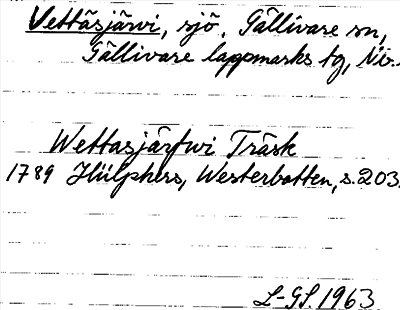 Vettäsjärvi, sjö, Gällivare sn,
Gällivare lappmarks tg, Nb.
Wettasjärfwi Träsk
1789 Hülphers, Westerbotten, s. 203.
L-GS. 1963